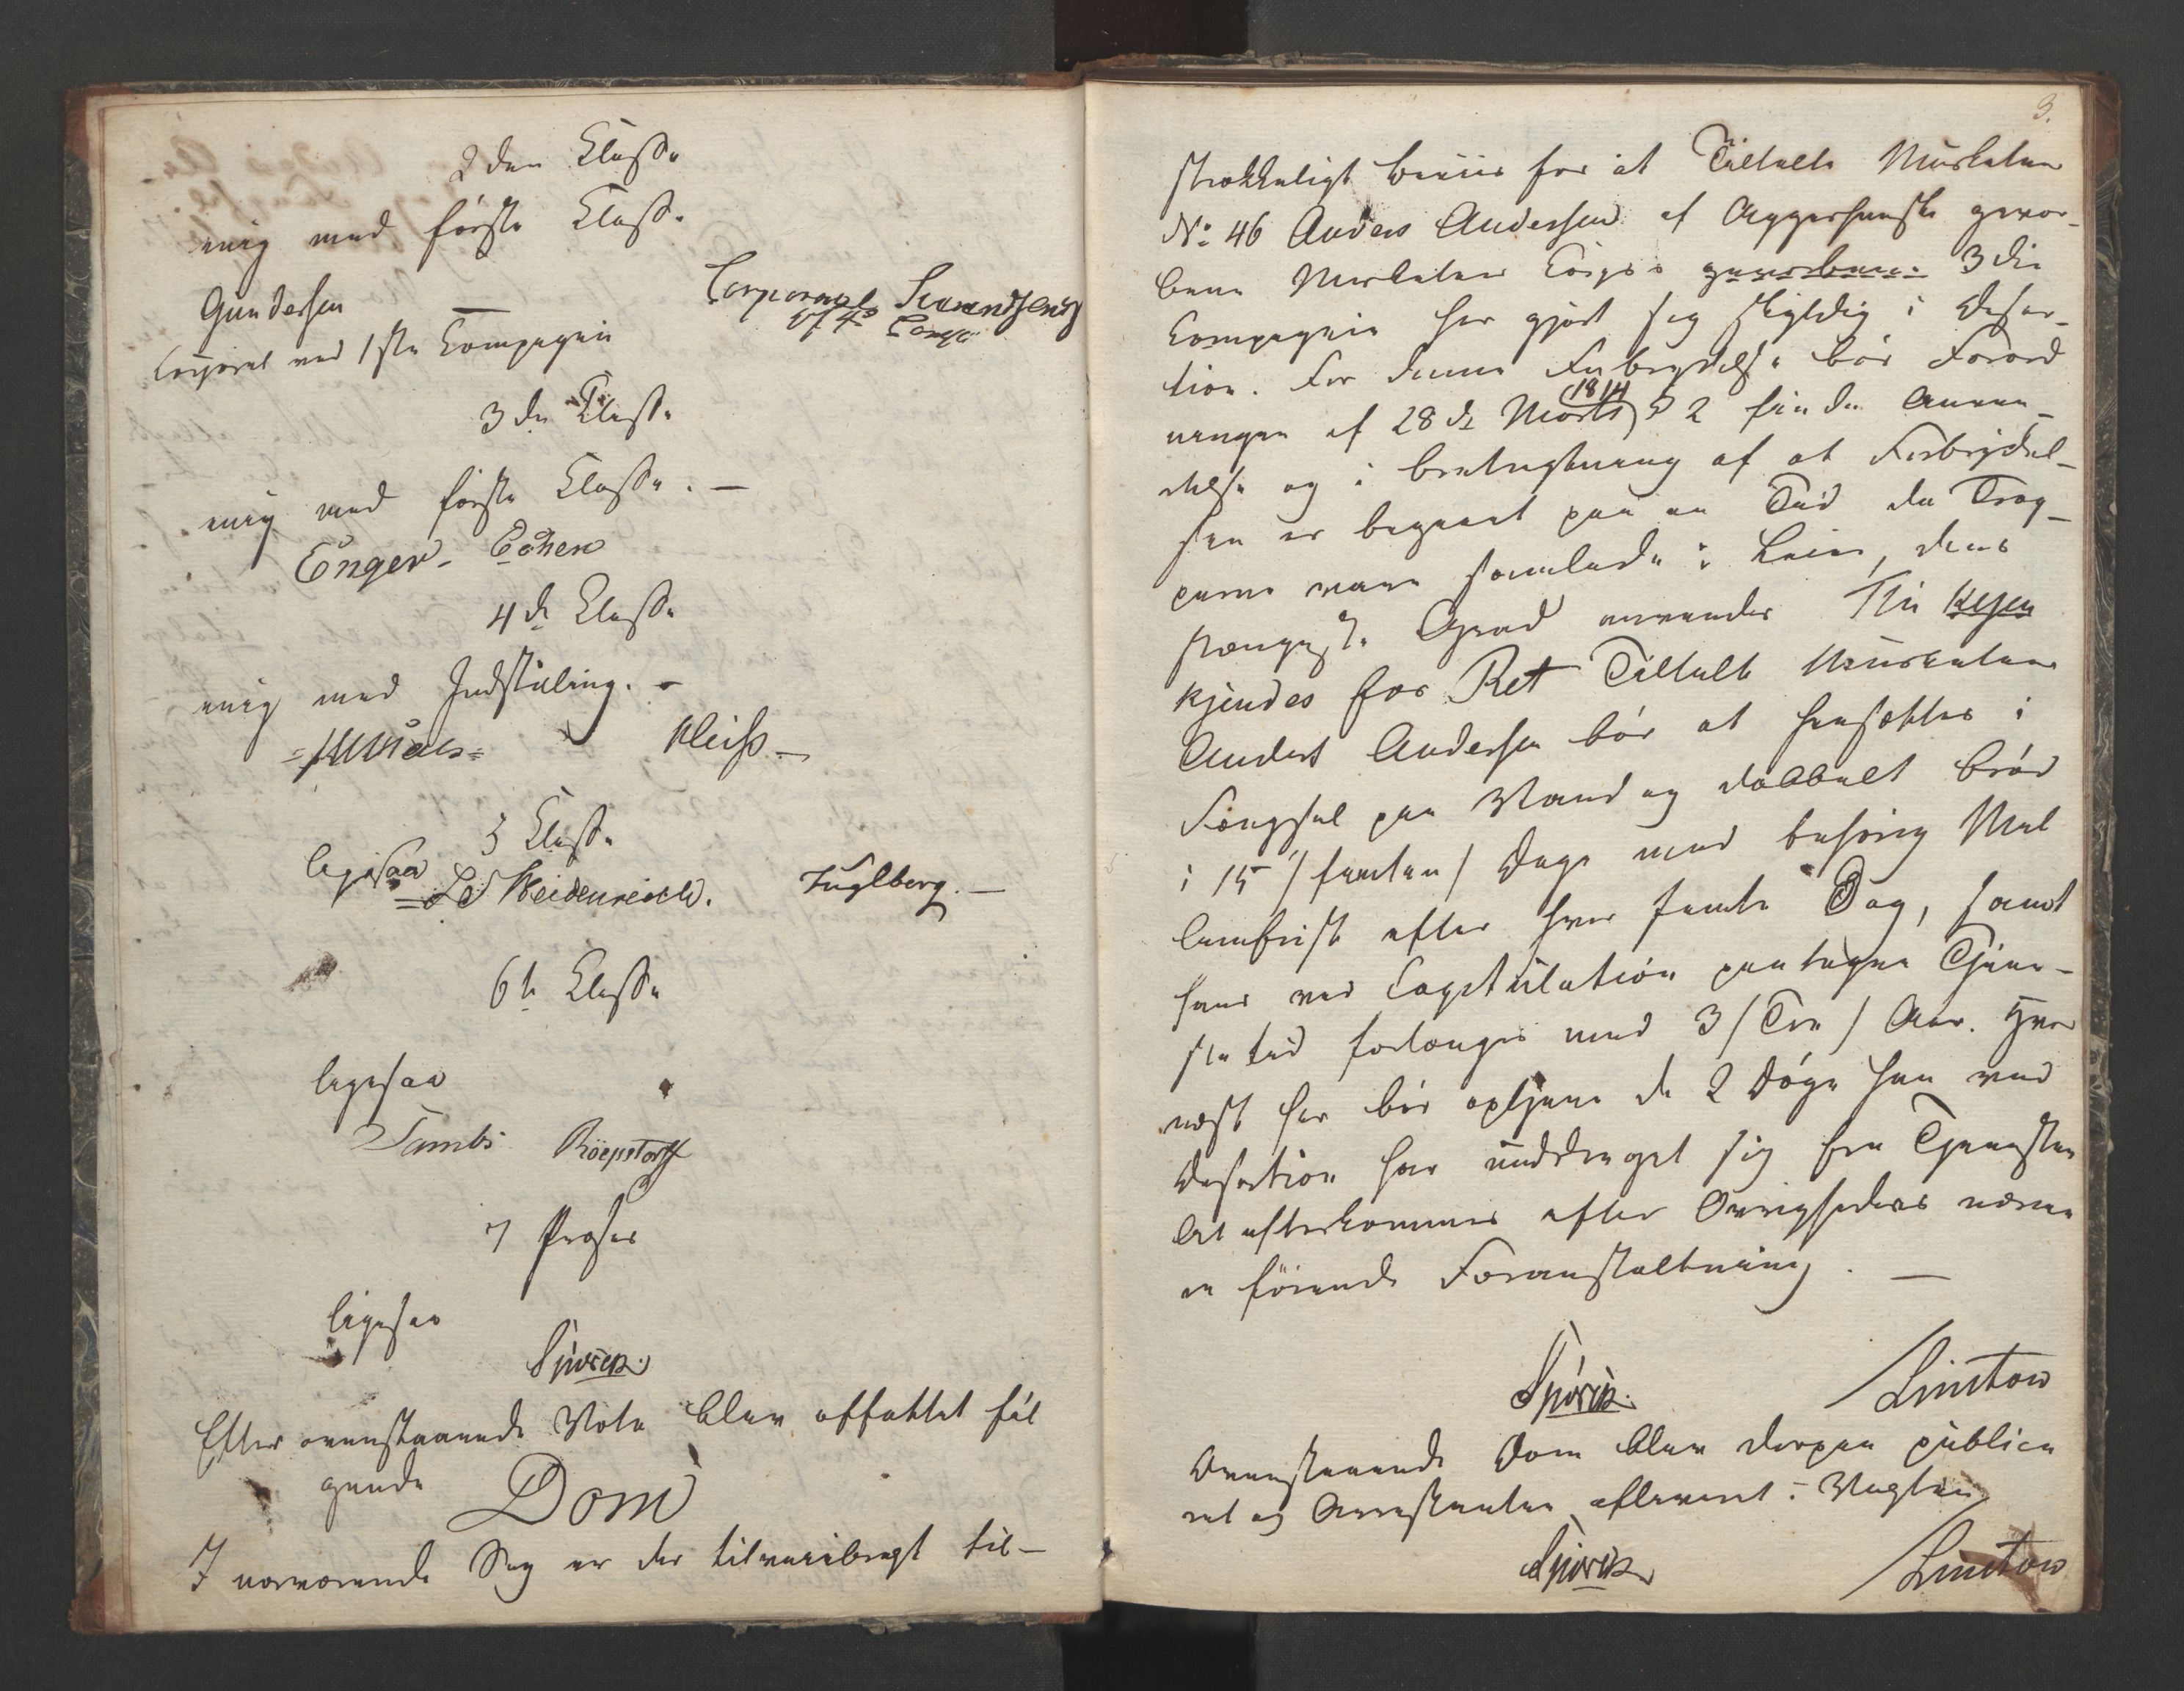 2den Classe
enig med første Classe
Gundersen
Corporal Svendsen
Corporal ved 1ste Compagnie
af 4de Comp:
3die Classe
enig med første Classe. —
Enger. Cohen
4de Classe
enig med Indstilling. —
Kleiss —
5 Classe
ligesaa
Weidenreich. Fuglberg. —
6te Classe
ligesaa
Tambs Röepstorff
7 Præses
ligesaa
Spørck
Efter ovenstaaende Vota blev affattet føl
gende
Dom
I nærværende Sag er der tilveiebragt til-
3.
strækkeligt beviis for at Tiltalte Musketeer
No: 46 Anders Andersen af Aggershuusske gevor-
bene Musketeer Corps's gevorbene 3die
Compagnie har gjort sig skyldig i Deser-
tion. For denne Forbrydelse bør Forord
1814
ningen af 28de Marts § 2 finde Anven-
delse og i betragtning af at Forbrydel-
sen er begaaet paa en Tid da Trop-
perne vare samlede i Leir, dens
strængeste Grad anvendes Thi
kjendes for Ret Tiltalte Musketeer
Anders Andersen bør at hensættes i
Fængsel paa Vand og dobbelt brød
i 15 /femten/ Dage med behørig Mel
lemfrist efter hver femte Dag, samt
hans ved Capitulation paatagne Tjene-
stetid forlænges med 3 /Tre/ Aar. Hver
næst han bør optjene de 2 Døgn han ved
Desertion har unddraget sig fra Tjenesten
At efterkommes efter Øvrighedens nærme
re førende Foranstaltning. —
Spørck. Linstow
Ovenstaaende Dom blev derpaa publice
ret og Arrestanten afleveret i Vagten
Spørck Linstow